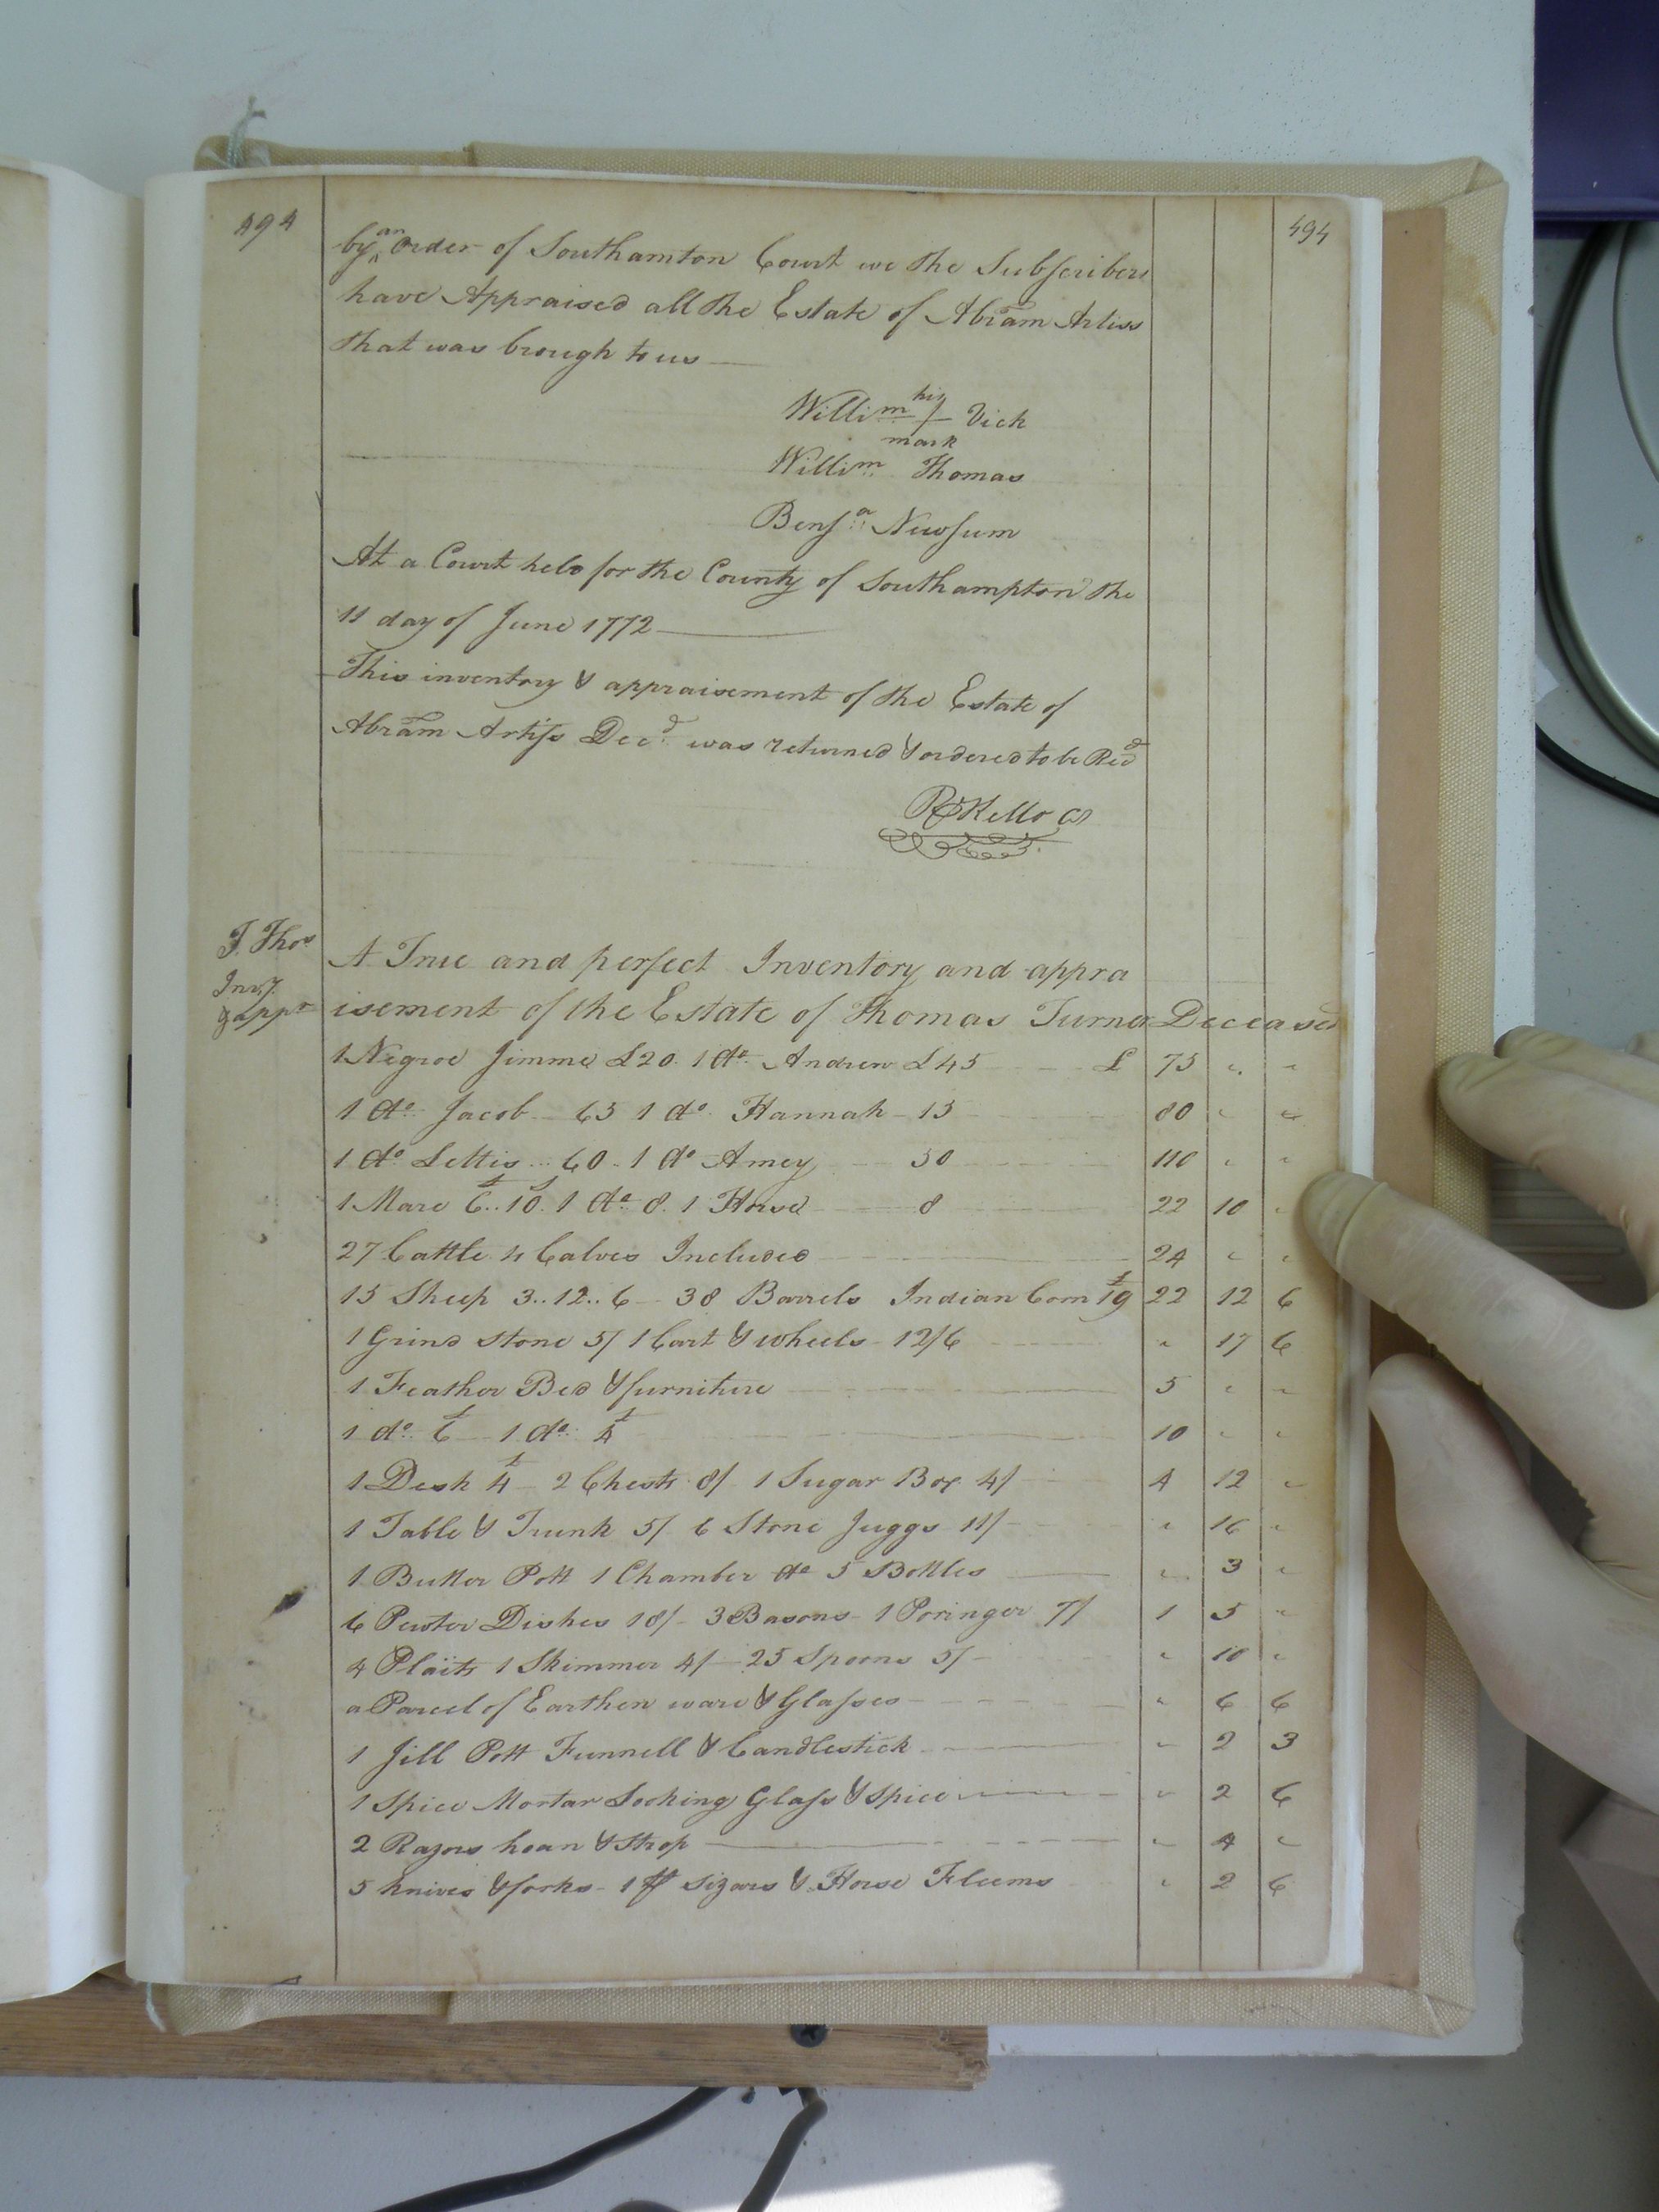 494
494
by an Order of Southamton Court we the Subscribers
have Appraised all the Estate of Abram Artiss
that was brough to us
his
Willim Vick
mark
Willim Thomas
Benja Newsum
At a Court held for the County of Southampton the
11 day of June 1772
This inventory & appraisement of the Estate of
Abram Artiss Decd was returned & ordered to be Recd
R Kello CS
T. Thos
Invy
& appr
A True and perfect Inventory and appra
isement of the Estate of Thomas Turner Deceased
1 Negroe Jimme £20. 1 do Andrew £45 £ 75 " "
1 do Jacob 65 1 do Hannah 15 80 " "
1 do Lettis 60 1 do Amey 50 110 " "
1 Mare £6..10s. 1 do 8. 1 Horse 8 22 10 "
27 Cattle 4 Calves Included 24 " "
15 Sheep 3..12..6 38 Barrels Indian Corn £19 22 12 6
1 Grind stone 5/ 1 Cart & wheels 12/6 " 17 6
1 Feather Bed & furniture 5 " "
1 do £6 1 do £4 10 " "
1 Desk £4 2 Chests 8/ 1 Sugar Box 4/ 4 12 "
1 Table & Trunk 5/ 6 Stone Juggs 11/ " 16 "
1 Butter Pott 1 Chamber do 5 Bottles " 3 "
6 Pewter Dishes 18/ 3 Basons 1 Poringer 7/ 1 5 "
4 Plaits 1 Skimmer 4/ 25 Spoons 5/ " 10 "
a Parcel of Earthen ware & Glasses " 6 6
1 Jill Pott Funnell & Candlestick " 2 3
1 Spice Mortar Looking Glass & Spice " 2 6
2 Razors hoan & Strop " 4 "
5 knives & forks 1 pr sizars & Horse Fleems " 2 6